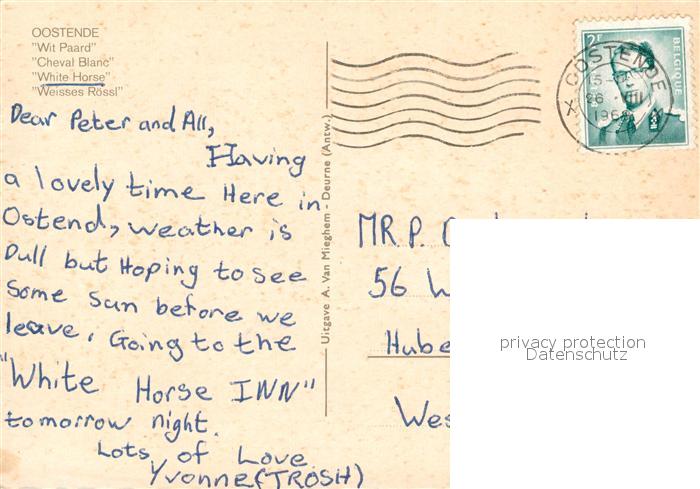 OOSTENDE
"Wit Paard"
"Cheval Blanc"
"White Horse"
"Weisses Rössl"
Dear Peter and All,
Having
a lovely time Here in
Ostend, weather is
Dull but Hoping to see
some sun before we
leave, Going to the
"White Horse INN"
tomorrow night.
Lots of Love
Yvonne (TROSH)
Uitgave A. Van Mieghem - Deurne (Antw.)
2F
BELGIQUE
OOSTENDE
15-
26 VIII
MR P.
56 W
Hube
Wes
privacy protection
Datenschutz